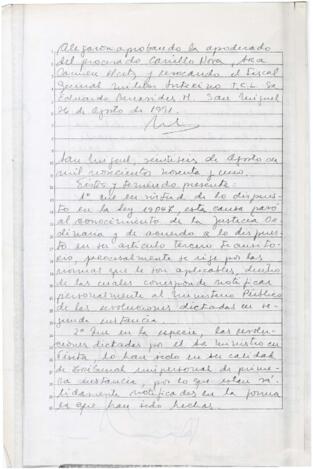 Alegaron aprobando la apoderada
del procesado Carrillo Nova, Axa
Carmen Hertz y revocando el Fiscal
General Militar Interino T.C.L. Sr.
Eduardo M. San Miguel
26 de Agosto de 1991.
San Miguel, veintiseis de Agosto de
mil novecientos noventa y uno.
Vistos y teniendo presente:
1° que en virtud de lo dispues
to en la Ley 19047, esta causa pasó
al conocimiento de la Justicia Or
dinaria y de acuerdo a lo dispues
to en su artículo tercero transito
rio, procesalmente se rige por las
normas que le son aplicables, dentro
de las cuales corresponde notificar
personalmente al Ministerio Público
de las resoluciones dictadas en se
gunda instancia.
2° Que en la especie, las resolu
ciones dictadas por el Sr. Ministro en
Visita lo han sido en su calidad
de Tribunal unipersonal de prime
ra instancia, por lo que estan vá
lidamente notificadas en la forma
en que han sido hechas.